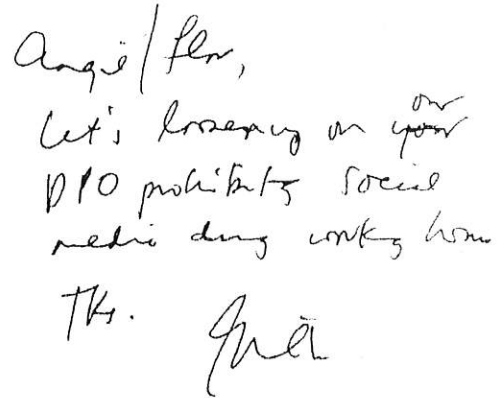 Angie/Flor,
Let's loosen up on our
DPO prohibiting social
media during working hours
Tks.